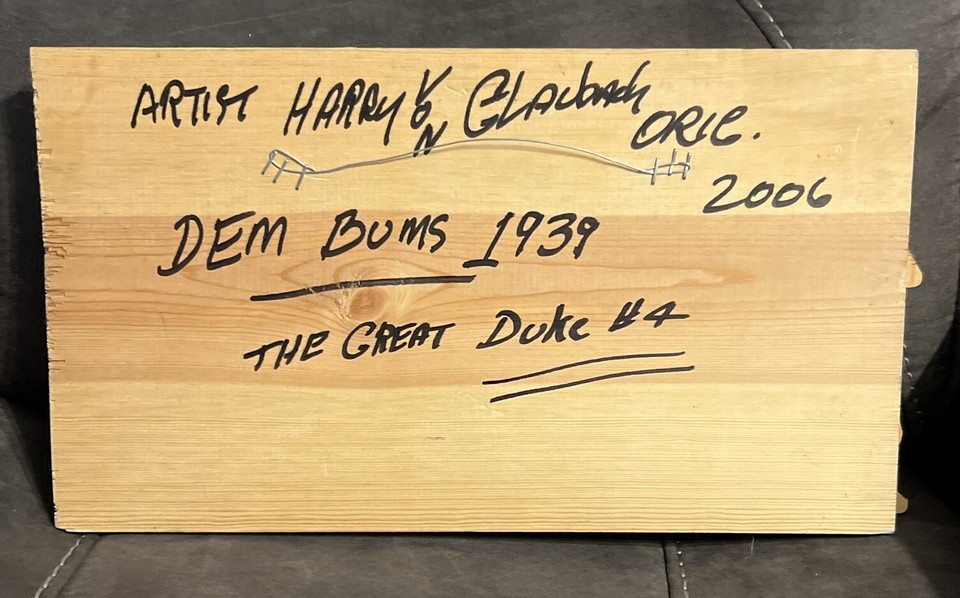 ARTIST HARRY VON Glaubach ORIG.
2006
DEM BUMS 1939
THE GREAT Duke #4